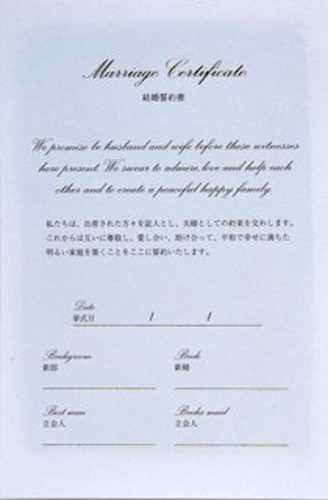 Marriage Certificate
結婚誓約書
We promise be husband and wife before these witnesses
here present. We swear to admire, love and help each
other and to create a peaceful happy family.
私たちは、出席された方々を証人とし、夫婦としての約束を交わします。
これからは互いに尊敬し、愛し合い、助け合って、平和で幸せに満ちた
明るい家庭を築くことをここに誓約いたします。
Date
挙式日 / /
Bridegroom Bride
新郎 新婦
Best man Brides maid
立会人 立会人